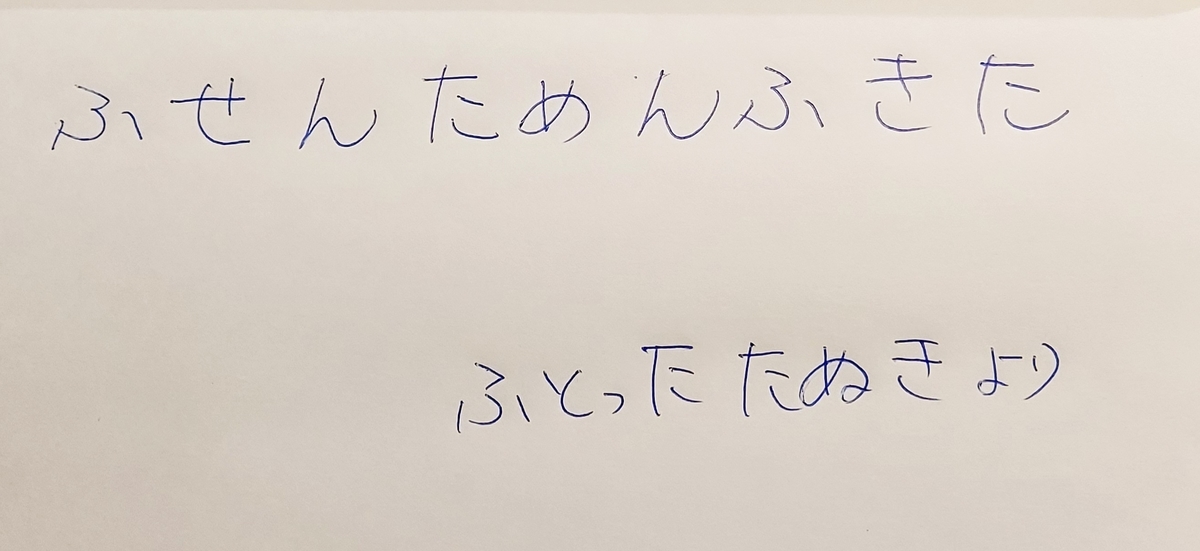 ふせんためんふきた
ふとったたぬきより